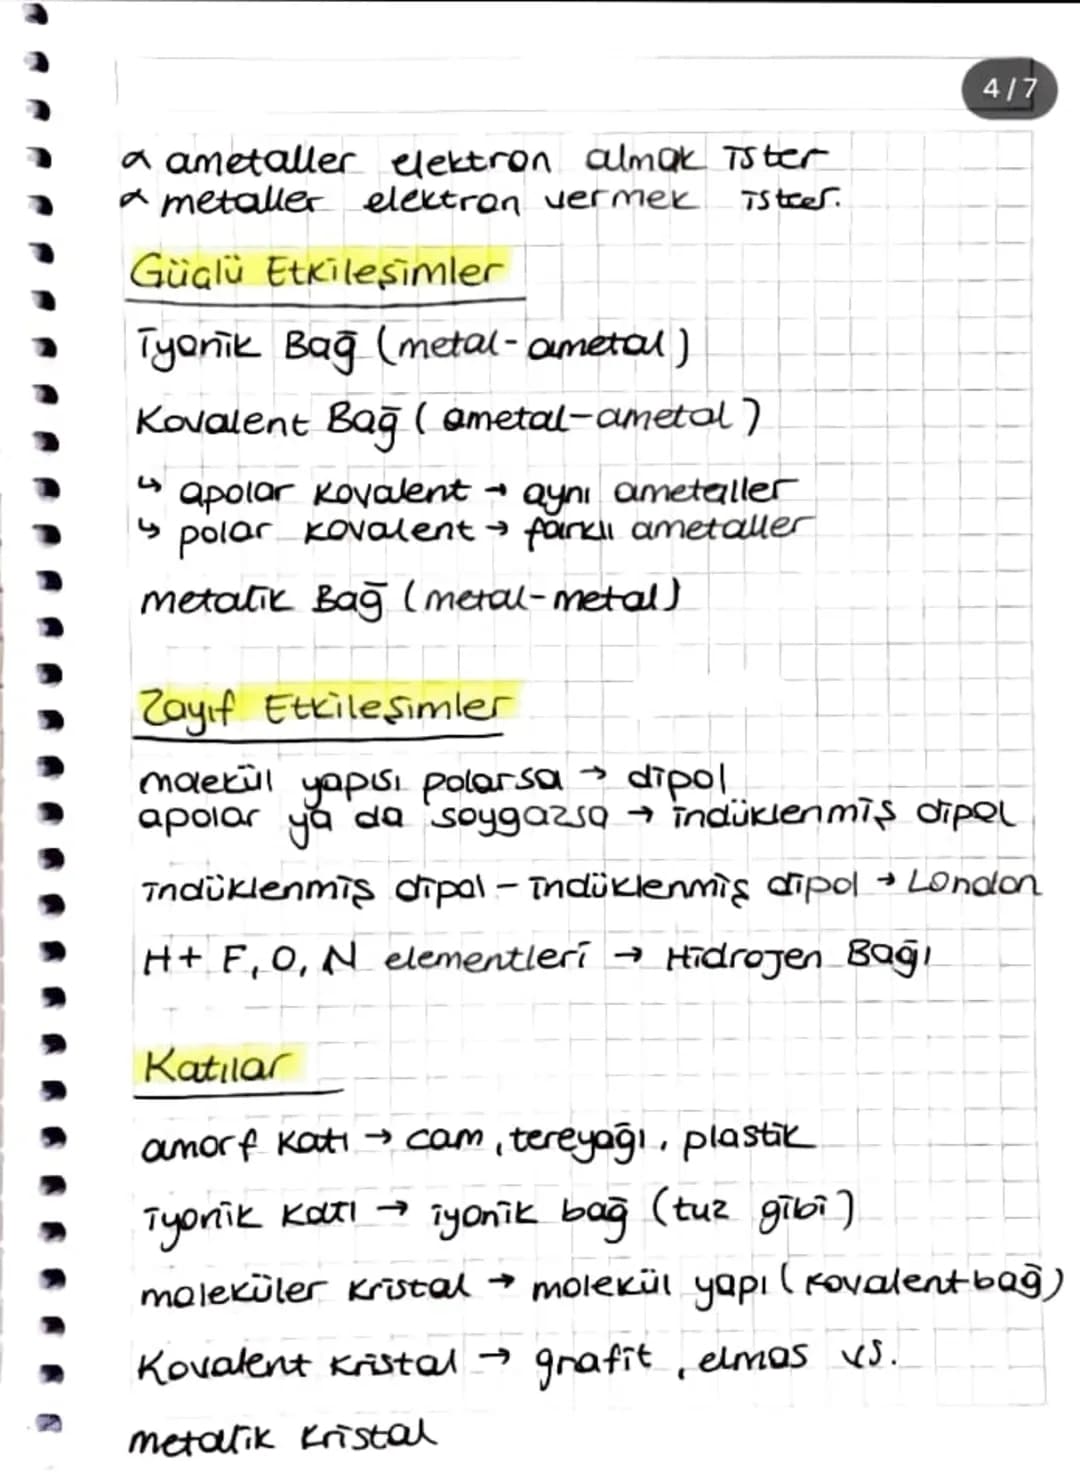 4/7
ametaller elektron almak ister
metaller elektron vermek ister.
Güçlü Etkileşimler
İyonik Bağ (metal-ametal)
Kovalent Bağ (ametal-ametal)
↳ apolar kovalent → aynı ametaller
↳ polar kovalent → farklı ametaller
metalik Bağ (metal-metal)
Zayıf Etkileşimler
molekül yapısı polarsa → dipol
apolar ya da soygazsa → indüklenmiş dipol
indüklenmiş dipol - indüklenmiş dipol → London
H+ F, O, N elementleri → Hidrojen Bağı
Katılar
amorf katı → cam, tereyağı, plastik
iyonik katı → iyonik bağ (tuz gibi)
moleküler kristal → molekül yapı (kovalent bağ)
Kovalent kristal → grafit, elmas vs.
metalik kristal